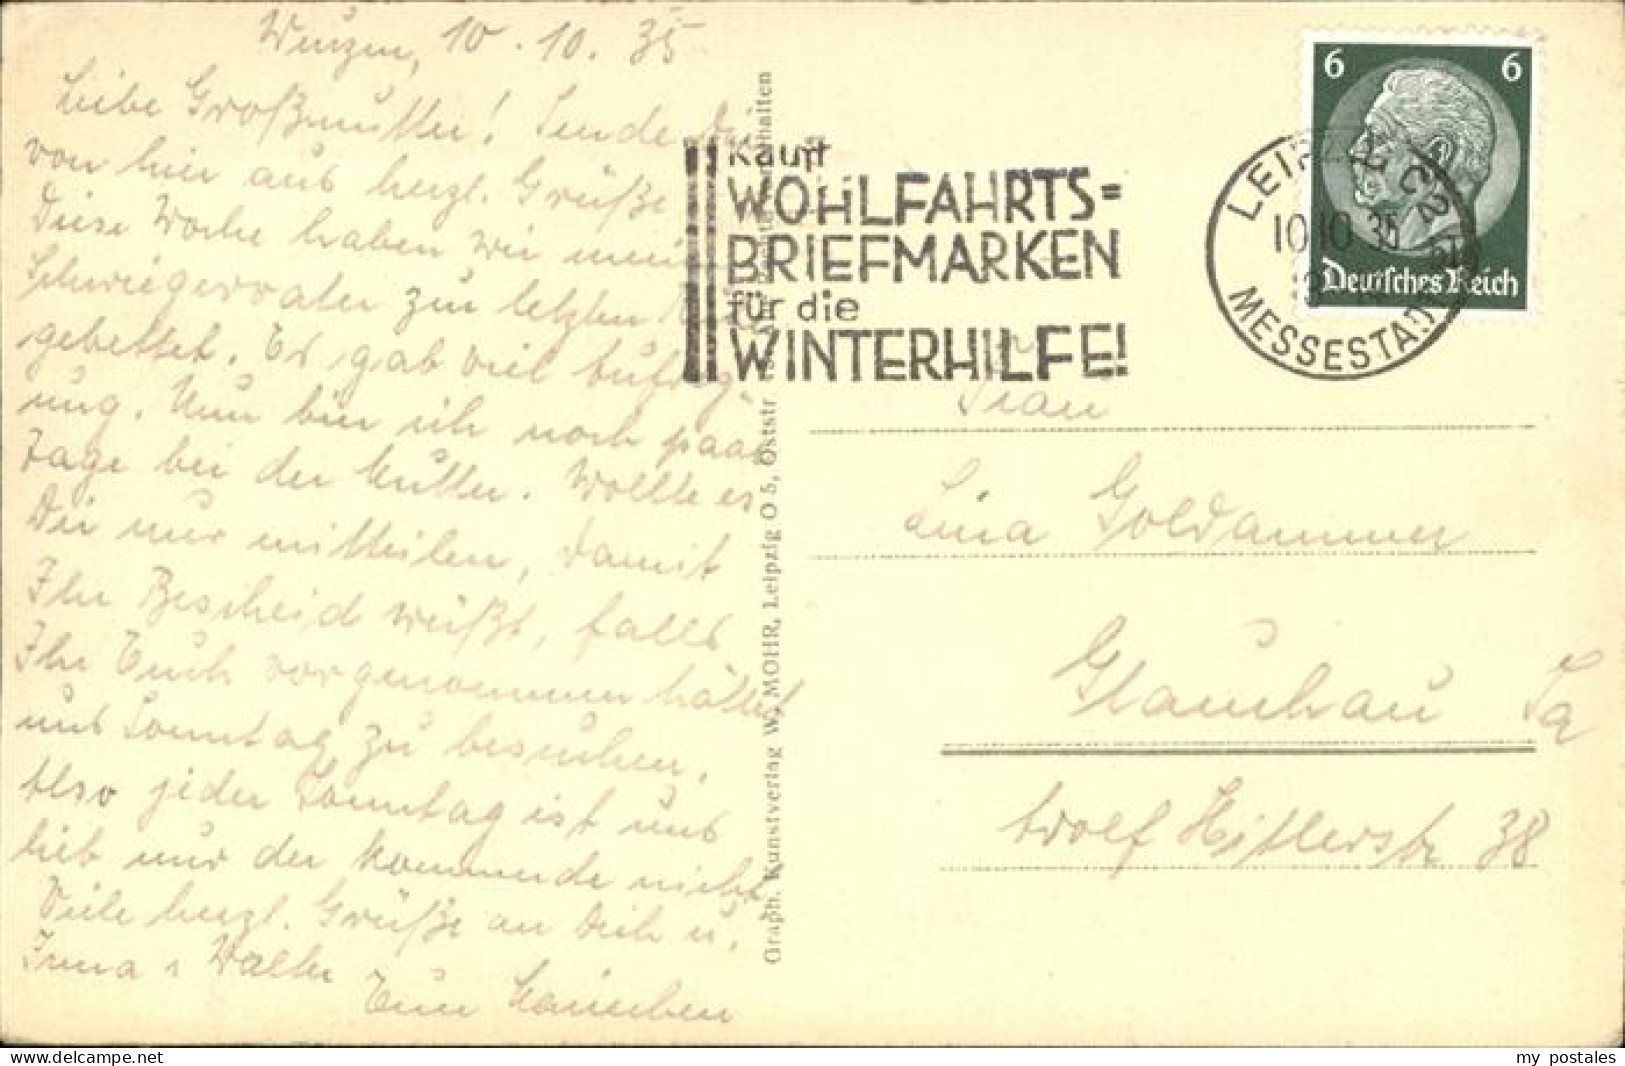 Wurzen, 10.10.35
Liebe Großmutter! Sende Dir
von hier aus herzl. Grüße
Diese Woche haben wir mein
Schwiegervater zur letzten Ruhe
gebettet. Es gab viel Aufreg-
ung. Nun bin ich noch paar
Tage bei der Mutter. Wollte es
Dir nur mitteilen, damit
Ihr Bescheid wüßt, falls
Ihr Euch vorgenommen hättet
uns Sonntag zu besuchen.
Also jeder Sonntag ist uns
lieb nur der kommende nicht
Viele herzl. Grüße an Dich u.
Walter
Eure
Graph. Kunstverlag W. MOHR, Leipzig O 5, Oststr
Kauft
WOHLFAHRTS=
BRIEFMARKEN
für die
WINTERHILFE!
LEIPZIG C2
10.10.35
MESSESTADT
6 6
Deutsches Reich
Frau
Lina Goldammer
Glauchau Sa
Adolf Hitlerstr 38
my postales
www.delcampe.net